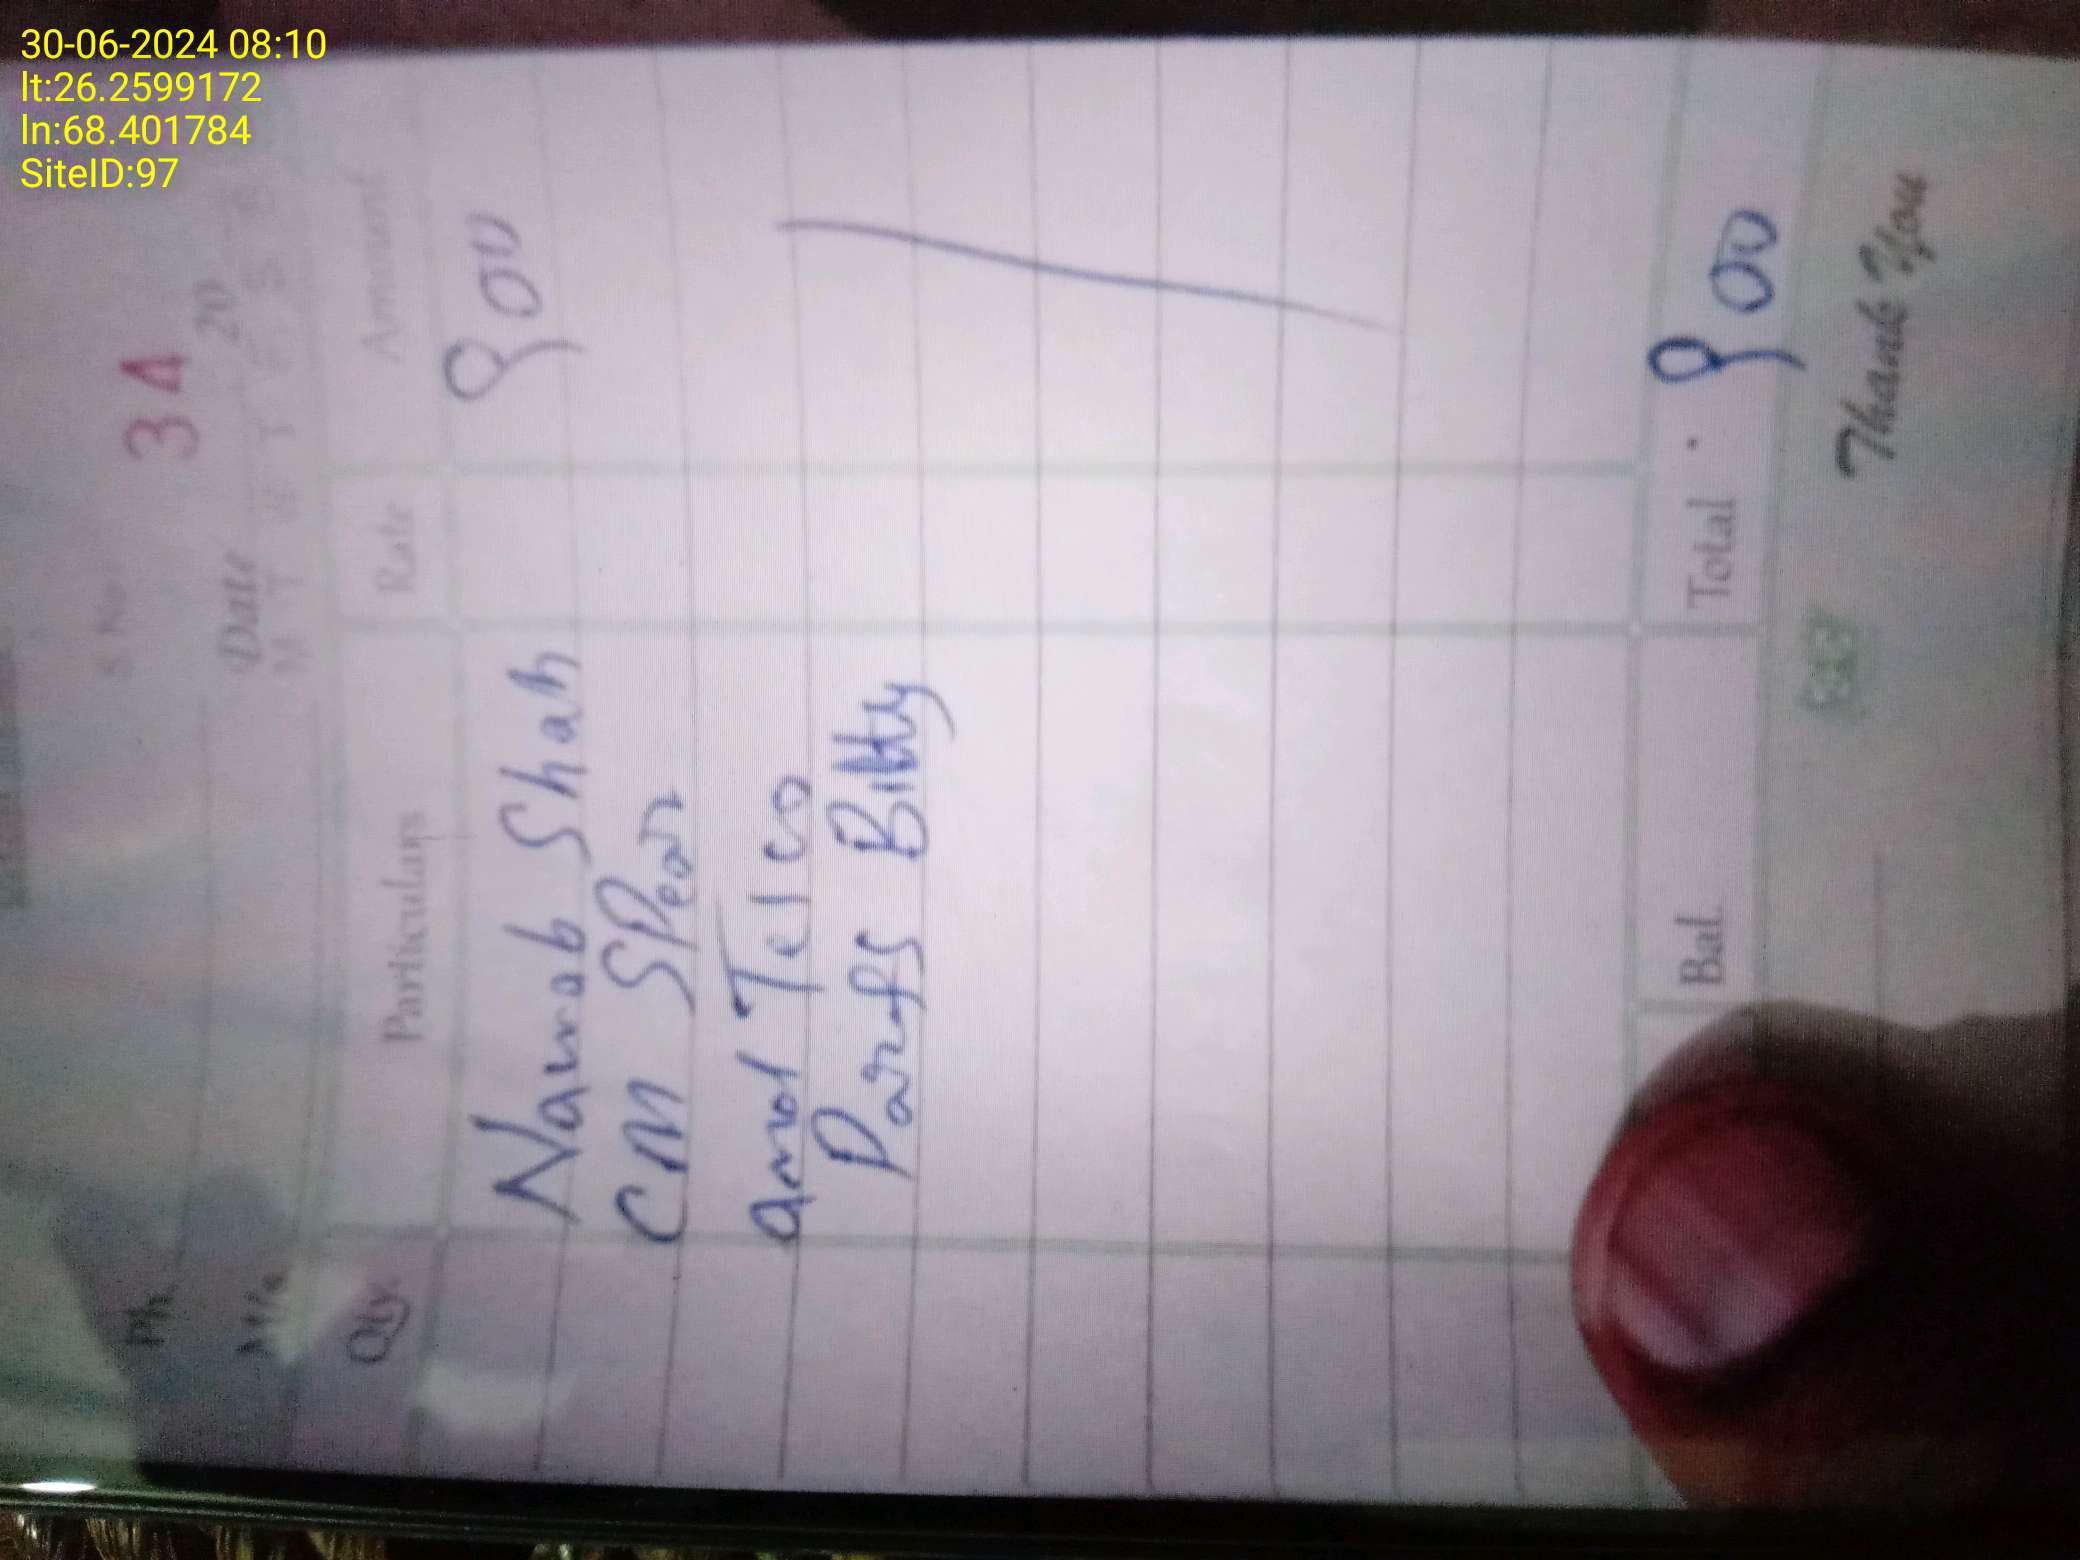 30-06-2024 08:10
lt:26.2599172
ln:68.401784
SiteID:97
Ph.
S.No. 34
M/s
Date 20
Qty. Particulars Rate Amount
Nawab Shah 900
CM Spear
and Telco
Parts Bilty
Bal. Total 900
Thank You